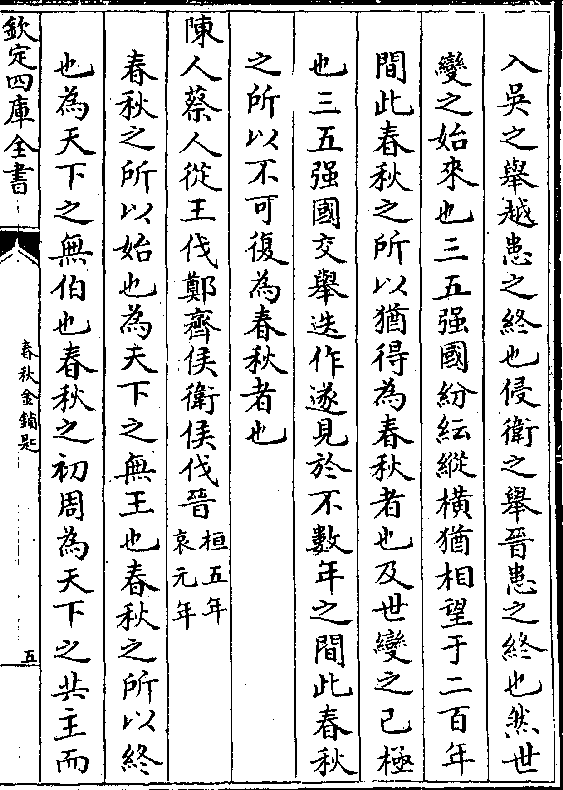 入吳之舉越患之終也侵衛之舉晉患之終也然世
變之始來也三五强國紛紜縱橫猶相望于二百年
間此春秋之所以猶得為春秋者也及世變之已極
也三五强國交舉迭作遂見於不數年之間此春秋
之所以不可復為春秋者也
陳人蔡人從王伐鄭齊侯衛侯伐晉桓五年哀元年
春秋之所以始也為天下之無王也春秋之所以終
也為天下之無伯也春秋之初周為天下之共主而
欽定四庫全書
春秋金鎖匙
五